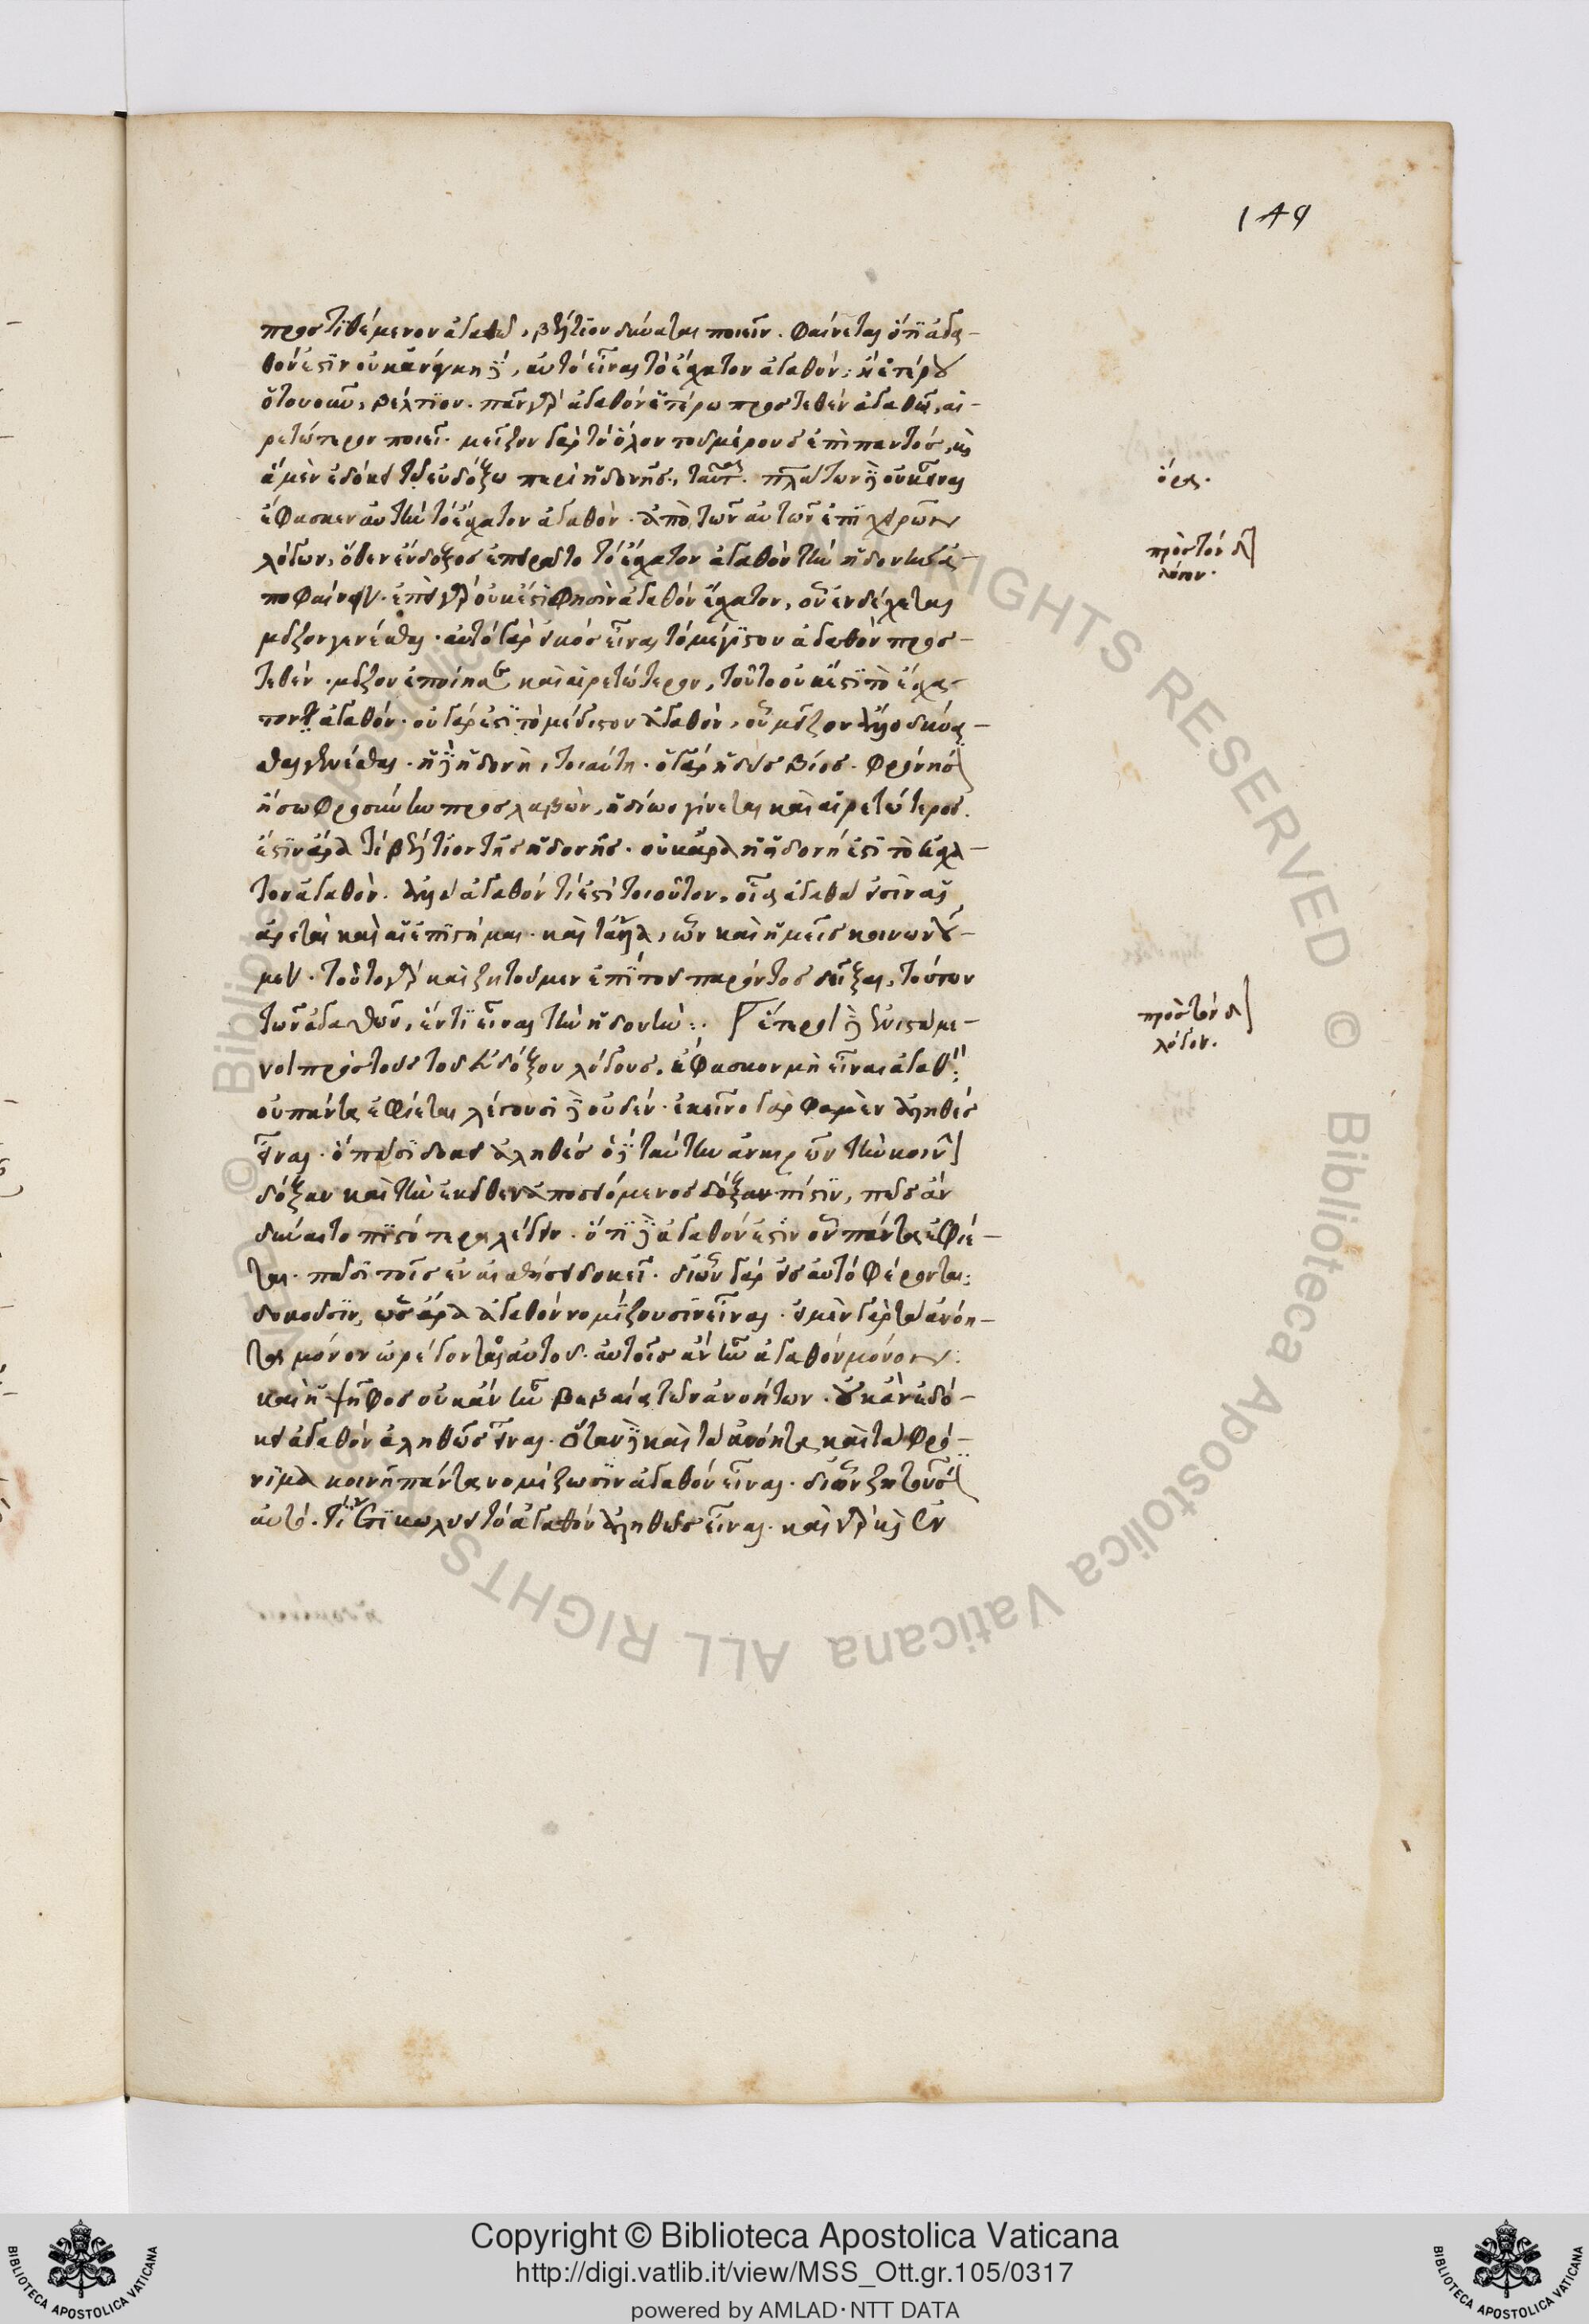 149
προστιθέμενον ἀγαθῷ, βέλτιον δύναται ποιεῖν. φαίνεται ὅτι ἀγα-
θόν ἐστιν οὐκ ἀνάγκη δὲ, αὐτὸ εἶναι τὸ ἔσχατον ἀγαθόν:
ὁτουοῦν, βέλτιον. πᾶν γὰρ ἀγαθὸν ἑτέρῳ προστεθὲν ἀγαθῷ, αἱ-
ρετώτερον ποιεῖ. μεῖζον γὰρ τὸ ὅλον τοῦ μέρους ἐπὶ παντός. καὶ
ἃ μὲν ἐδόκει τῷ εὐδόξῳ περὶ ἡδονῆς, ταῦτα. πλάτων δὲ οὐκ εἶναι
ἔφασκεν αὐτὴν τὸ ἔσχατον ἀγαθόν. ἀπὸ τῶν αὐτῶν ἐπιχειρῶν
λόγων, ὅθεν εὔδοξος ἐπειρᾶτο τὸ ἔσχατον ἀγαθὸν τὴν ἡδονὴν ἀ-
ποφαίνειν. ἐπεὶ γὰρ οὐκ ἔστι φησὶν ἀγαθὸν ἔσχατον, οὗ ἐνδέχεται
μεῖζον γενέσθαι. αὐτὸ γὰρ εἰκὸς εἶναι τὸ μέγιστον ἀγαθὸν προσ-
τεθὲν. μεῖζον ἐποίησε καὶ αἱρετώτερον, τοῦτο οὐκ ἔστι τὸ ἔσχα-
τον ἀγαθόν. οὐ γάρ ἐστι τὸ μέγιστον ἀγαθὸν, οὗ μεῖζον ἄλλο δύνα-
σθαι γενέσθαι. ἡ δὲ ἡδονὴ, τοιαύτη. ὁ γὰρ ἡδὺς βίος. φρόνησιν
ἢ σωφροσύνην προσλαβὼν, ἡδίων γίνεται καὶ αἱρετώτερος.
ἔστιν ἄρα τὶ βέλτιον τῆς ἡδονῆς. οὐκ ἄρα ἡ ἡδονή ἐστι τὸ ἔσχα-
τον ἀγαθόν. ἀλλ' ἀγαθόν τί ἐστι τοιοῦτον, οἷα ἀγαθά εἰσιν αἱ
ἀρεταὶ καὶ αἱ ἐπιστήμαι. καὶ τἄλλα, ὧν καὶ ἡμεῖς κοινωνοῦ-
μεν. τοῦτο γὰρ καὶ ζητοῦμεν ἐπὶ τοῦ παρόντος δεῖξαι, τούτων
τῶν ἀγαθῶν, ἕν τι εἶναι τὴν ἡδονήν:. ἕτεροι δὲ ἐνιστάμε-
νοι πρὸς τοὺς τοῦ εὐδόξου λόγους, ἔφασκον μὴ εἶναι ἀγαθὸν
οὗ πάντα ἐφίεται λέγουσι δὲ οὐδέν. ἐκεῖνο γὰρ φαμὲν ἀληθὲς
εἶναι. ὃ πᾶσι δοκεῖ ἀληθές ὁ δὲ ταύτην ἀναιρῶν τὴν κοινὴν
δόξαν καὶ τὴν ἐκεῖθεν ἀποσειόμενος δόξαν πίστιν, πῶς ἂν
δύναιτο πιστότερα λέγειν. ὅτι δὲ ἀγαθόν ἐστιν οὗ πάντα ἐφίε-
ται. πᾶσι τοῖς ἐν αἰσθήσει δοκεῖ. δι' ὧν γὰρ εἰς αὐτὸ φέρονται:
δοκοῦσιν, ὡς ἄρα ἀγαθὸν νομίζουσιν εἶναι. εἰ μὲν γὰρ τὰ ἀνόη-
τα μόνον ὠρέγοντο αὐτοῦ. αὐτοῖς ἂν ἦν ἀγαθὸν μόνον.
καὶ ἡ ψῆφος οὐκ ἂν ἦν βεβαία τῶν ἀνοήτων. οὐκ ἂν ἐδό-
κει ἀγαθὸν ἀληθῶς εἶναι. ὅταν δὲ καὶ τὰ ἀνόητα καὶ τὰ φρό-
νιμα κοινῇ πάντα νομίζωσιν ἀγαθὸν εἶναι. δι' ὧν ζητοῦσιν
αὐτό. τί ἐστι κωλύει τὸ ἀγαθὸν ἀληθῶς εἶναι. καὶ γὰρ καὶ ἐν
ὅρα.
πρὸς τὸν
λόγον.
πρὸς τὸν
λόγον.